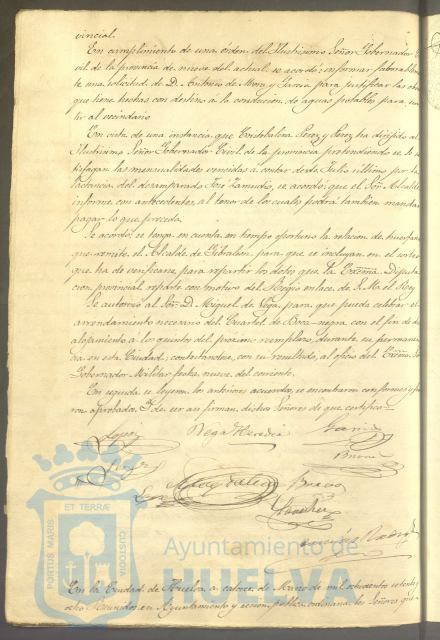 vincial.
En cumplimiento de una orden del Ilustrisimo Señor Gobernador Ci-
vil de la provincia de nueve del actual, se acordó: informar favorablemen-
te una solicitud de D. Antonio de Mora y Garcia para justificar las obras
que tiene hechas con destino a la conduccion de aguas potables para sur-
tir al vecindario
En vista de una instancia que Cristobalina Perez y Perez ha dirijido al
Ilustrisimo Señor Gobernador Civil de la provincia pretendiendo se le sa-
tisfagan las mensualidades vencidas a contar desde Julio ultimo por la
lactancia del desamparado José Zamudio, se acordó: que el Sor Alcalde
informe con antecedentes, al tenor de los cuales podrá tambien mandar
pagar lo que proceda.
Se acordó: se tenga en cuenta en tiempo oportuno la relacion de huerfanas
que remite el Alcalde de Gibraleon para que se incluyan en el sorteo
que ha de verificarse para repartir los dotes que la Excma Diputa-
cion provincial reparte con motivo del Regio enlace de S. M. el Rey
Se autorizó al Sor D. Miguel de Vega para que pueda celebrar el
arrendamiento necesario del Cuartel de Boca-negra con el fin de dar
alojamiento a los quintos del proximo reemplazo durante su permanen-
cia en esta Ciudad; contestandose, con su resultado, al oficio del Excmo Señor
Gobernador Militar fecha nueve del corriente.
En seguida se leyeron los anteriores acuerdos, se encontraron conformes y fue-
ron aprobados. Y de ser asi firman dichos Señores de que certifico.
Lopez Vega Heredia Garcia
Bravo
PORTUS MARIS ET TERRÆ CUSTODIA
Ayuntamiento de
HUELVA
En la Ciudad de Huelva a catorce de Marzo de mil ochocientos setenta y
ocho Reunidos en Ayuntamiento y sesion publica ordinaria los Señores que